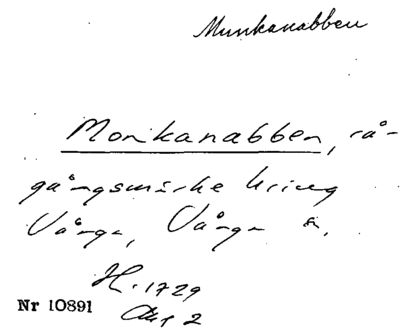 Munkanabben
Monkanabben, rå-
gångsmärke kring
Vånga, Vånga sn.
H. 1729
Akt 2
Nr 10891